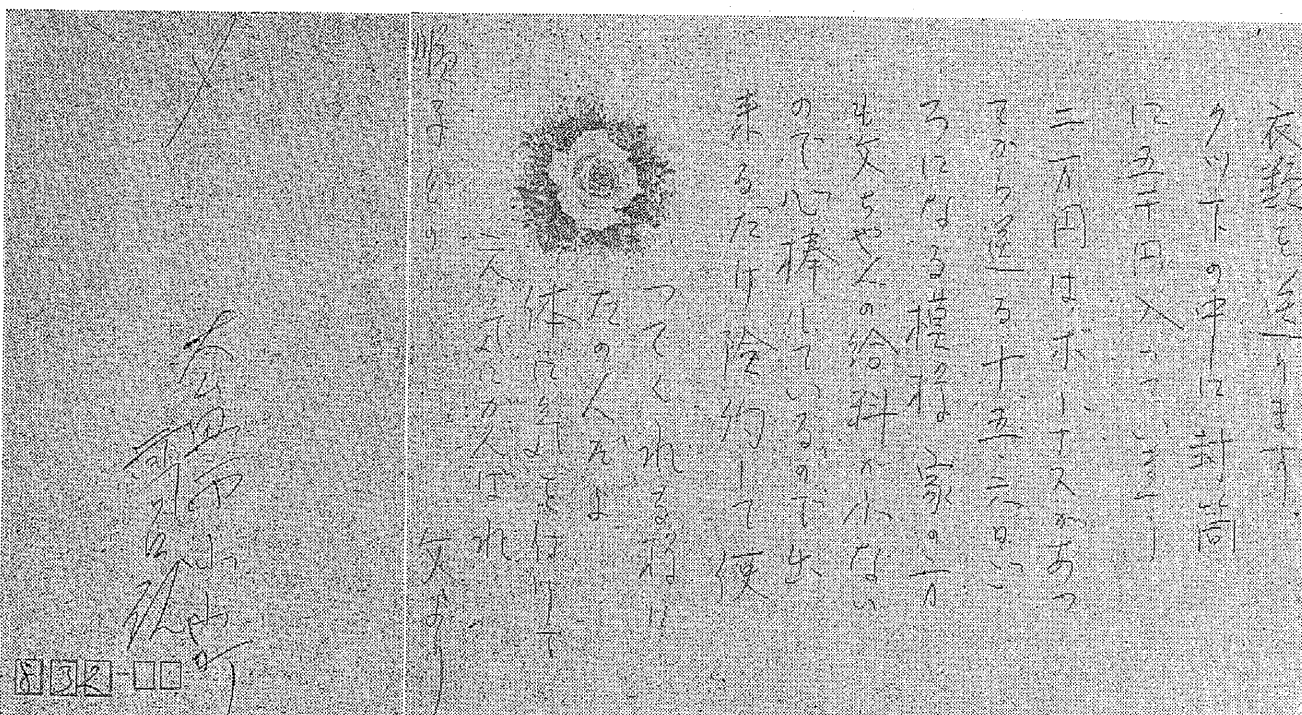 衣類を送ります
クツ下の中に封筒
に五千円入っています
二万円はボーナスがあつ
てから送る十五、六日ごろ
ろになる模様家の方
も文ちゃんの給料が小ない
ので心棒しているので出
来るだけ険約して使
つてくれる様に
たのんだよ
体に気を付けて
元気でがんばれ
文より
順子どの
832-